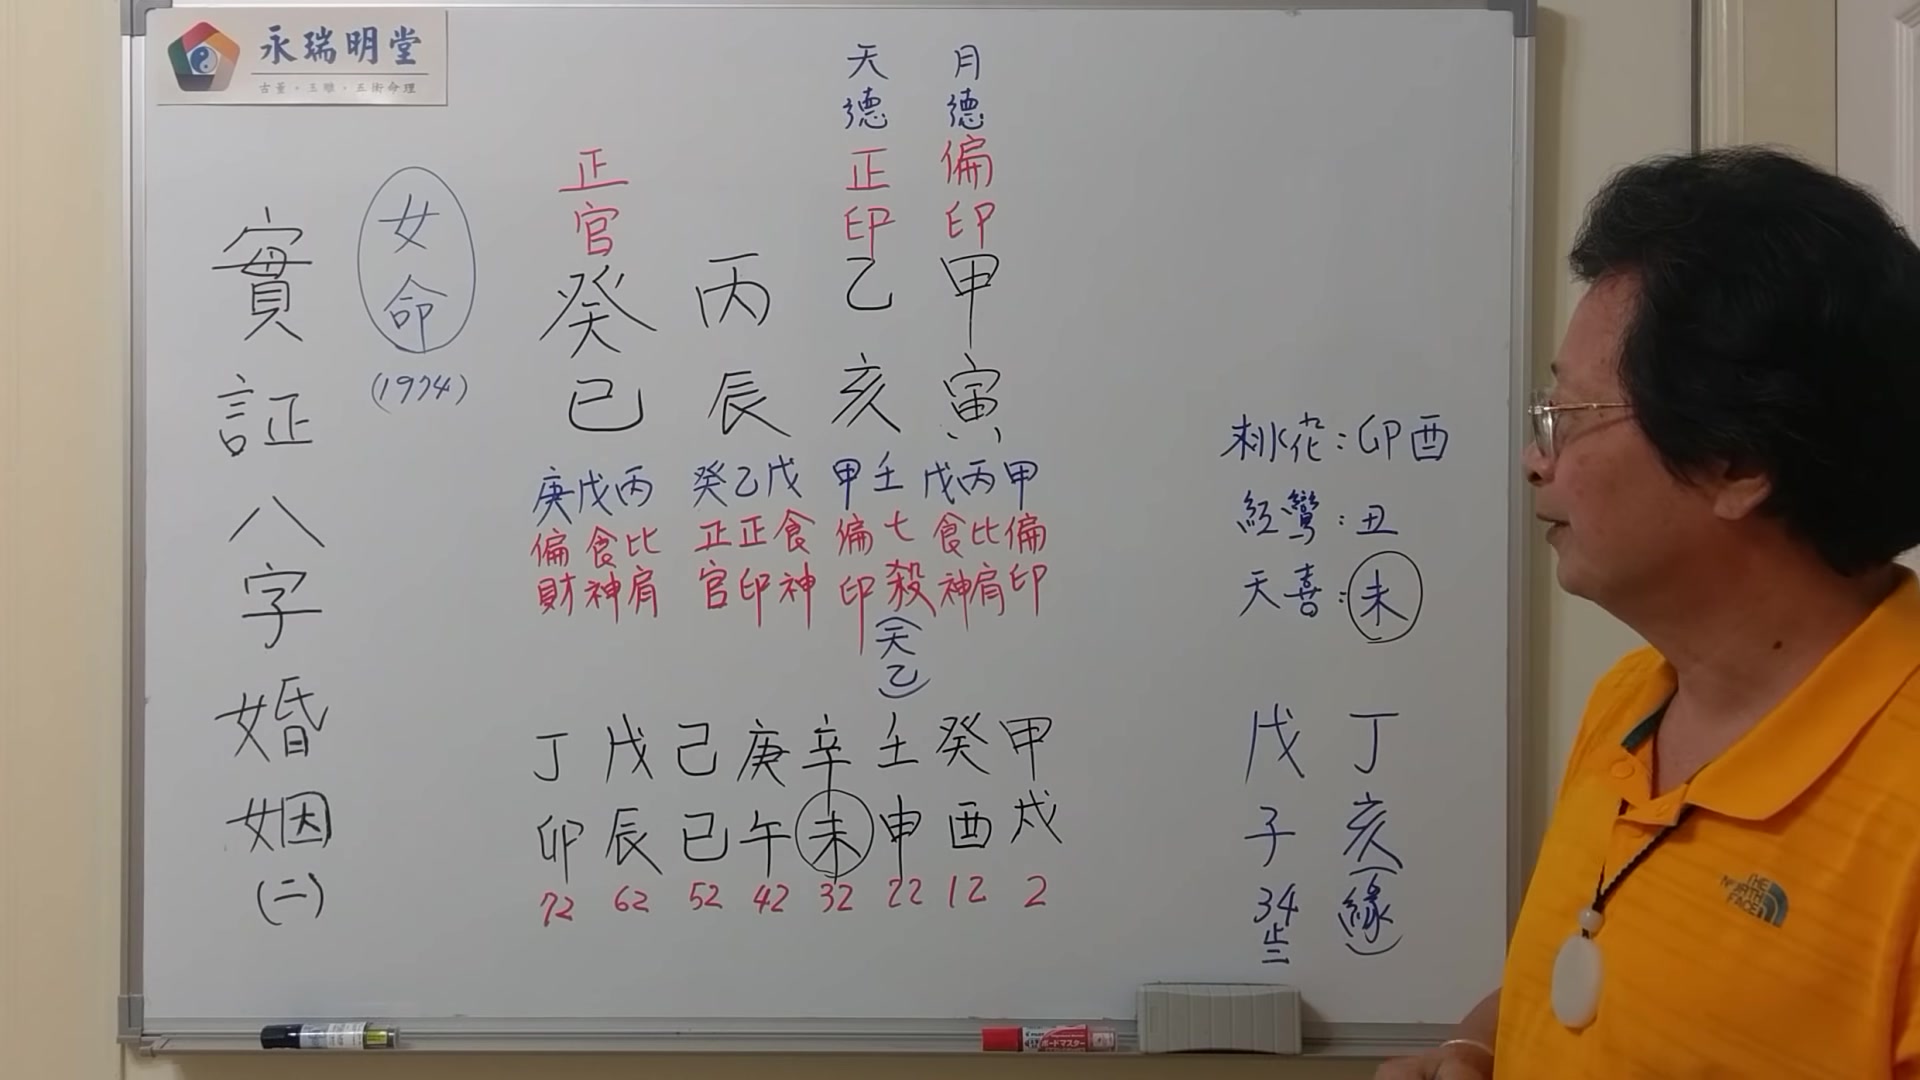 永瑞明堂
古董·玉雕·五術命理
實証八字婚姻(二)
女命
(1974)
天德 月德
正官 正印 偏印
癸 丙 乙 甲
巳 辰 亥 寅
庚戊丙 癸乙戊 甲壬 戊丙甲
偏財 食神 比肩 正官 正印 食神 偏印 七殺 食神 比肩 偏印
(天乙)
丁 戊 己 庚 辛 壬 癸 甲
卯 辰 巳 午 未 申 酉 戌
72 62 52 42 32 22 12 2
桃花:卯酉
紅鸞:丑
天喜:未
戊 丁
子 亥
34歲 (緣)
THE NORTH FACE
ボードマスター